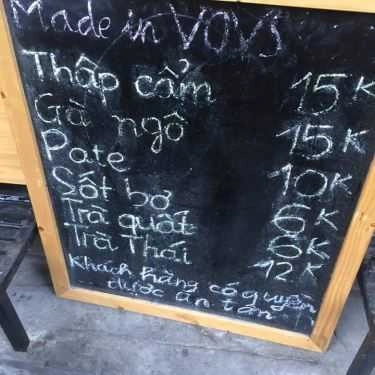 Made in VOVS
Thập cẩm 15K
Gà ngô 15K
Pate 10K
Sốt bơ 6K
Trà quất 6K
Trà Thái 12K
Khách hàng có quyền
được ăn